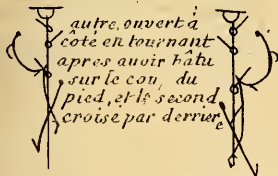 autre, ouvert à
côté en tournant
apres auoir bâtu
sur le cou, du
pied, et le second
croise par derriere